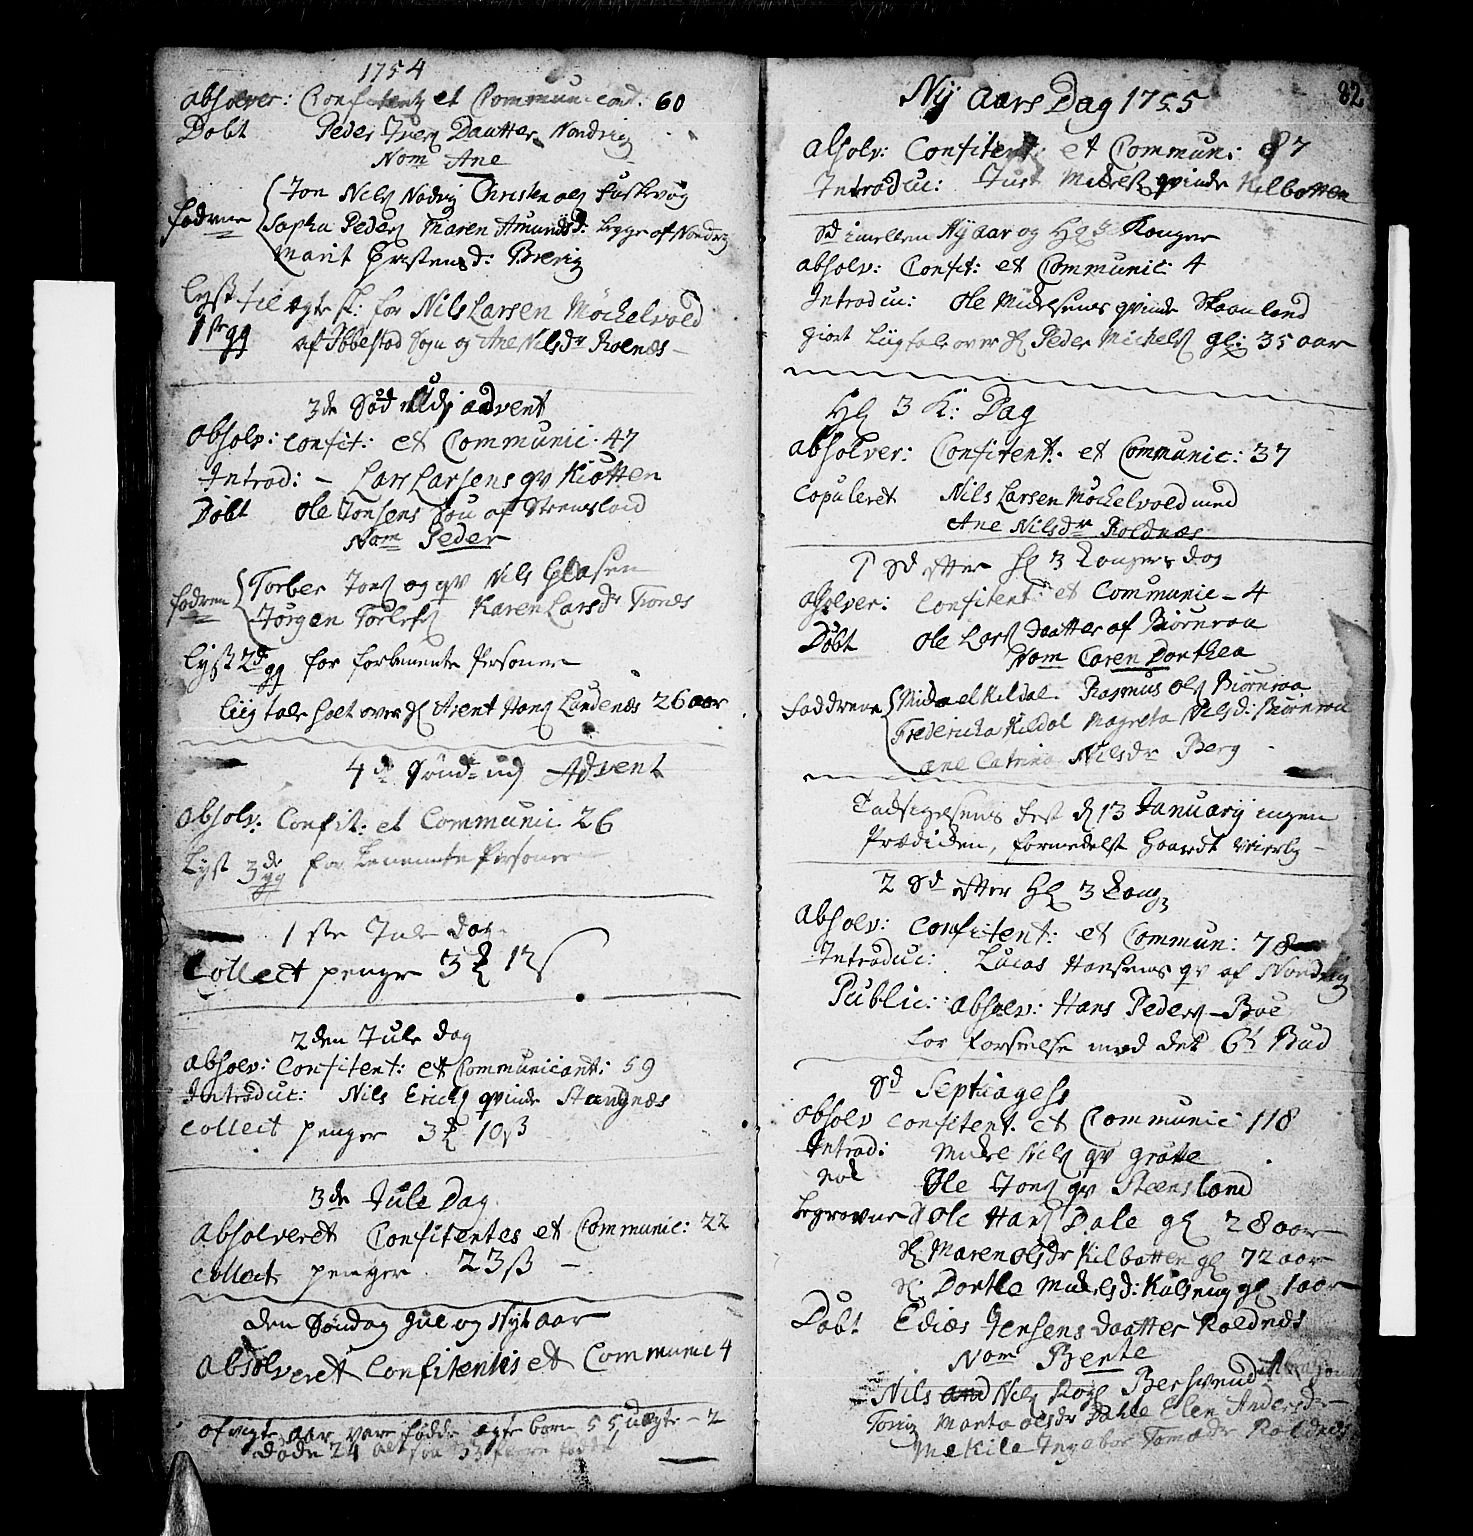 1754
absolver: Confitent et Communicad. 60
Døbt Peder Iver Daatter Nordvig
Nom Ane
fadrene Jon Nils Nodvig Christen ols
Sopha Peders Maren Amundsd: begge af Nordvig
Marit Christensd: Brevig
lyst til ægte sk: for Nils Larsen Møckelvold
1ste gg af Ibbestad Sogn og Ane Nilsdr Rolnæs
3de Sød udj advent
absolv: confit: et Communic. 47
Introd: - Lars Larsens qv Kiøtten
Døbt Ole Jonsens Søn af Steensland
Nom Peder
fadren Torber Jons og qv Nils Glasen
Jørgen Torlefs Karen Larsdr Trones
lyst 2d gg for forbenente Personer
Liigtale holt over Sl Arent Hans Lundenæs 26 aar
4de Sønd: udj Advent
absolv: Confit: et Communic 26
Lyst 3de gg for benente Personer
1ste Jule dag
Collect penger 3 12
2den Jule dag
absolv: Confitent: et Communicant: 59
Introduc: Nils Erichs qvinde Stangnæs
Collect penger 3 10ß
3de Jule Dag
absolveret Confitentes et Communic: 22
collect penger 23ß
den Søndag Jul og Nyt aar
absolveret Confitentes et Communic 4
afvigte aar vare fødde ægte børn 55 uægte - 2
døde 24 altsaa 33 flere fødte
82
Nÿ Aars Dag 1755
absolv: Confitent: et Commun: 87
Introduc: Just Michels qvinde Kilbotten
Sd imellem Nÿaar og Hl 3 Konger
absolv: Confit: et Communic: 4
Introduc: Ole Michelsens qvinde Skaanland
giort Liigtale over Sl Peder Michels gl: 35 aar
Hl 3 K: Dag
absolver: Confitent: et Communic: 37
Copuleret Nils Larsen Møckelvold med
Ane Nilsdr Roldnæs
1 Sd efter Hl 3 Kongers dag
absolver: Confitent: et Communic - 4
Døbt Ole Lars daatter af Biørnraa
Nom Caren Dorthea
Faddrene Michael Kildal Rasmus Ols Biørnraa
Fredericha Kildal Magreta Nilsd: Biørnraa
ane Catrina Nilsdr Berg
Tacsigelsens fest d 13 Januarÿ ingen
Prædicken, formedelst haardt veirlig
2 Sd efter Hl 3 Kong
absolv: Confitent: et Commun: 78
Introduc: Lucas Hansens qv af Nordvig
Public: absolv: Hans Peders Boe
for forseelse mod det 6te Bud
Sd Septuages
absolv confitent. et Communic 118
Introd: Michel Nils qv grøtte
nok Ole Jons qv Steensland
begravne Sl Ole Hans Dale gl 28 aar
Sl Maren olsdr Kilbotten gl 72 aar
Sl Dortle Michelsd: Kulseng gl 1 aar
Døbt Edias Jensens daatter Roldnæs
Nom Bente
Nils Nils Rogl Berswend
Tonig Marta olsdr Dahle Elen Andersdr
Mekile Ingebor Tomædr Roldnæs